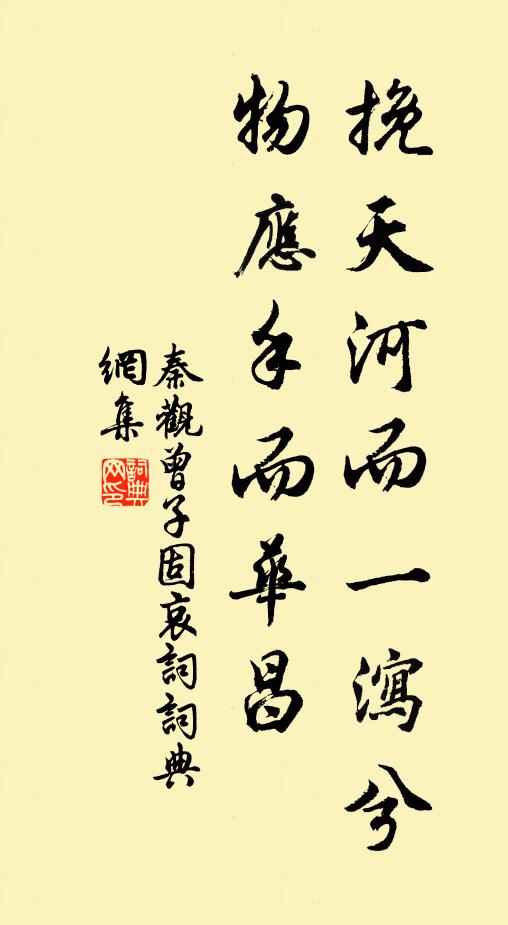 挽天河而一瀉兮
物應手而華昌
秦觀曾子固哀詞詞典
網集
詞典
网印